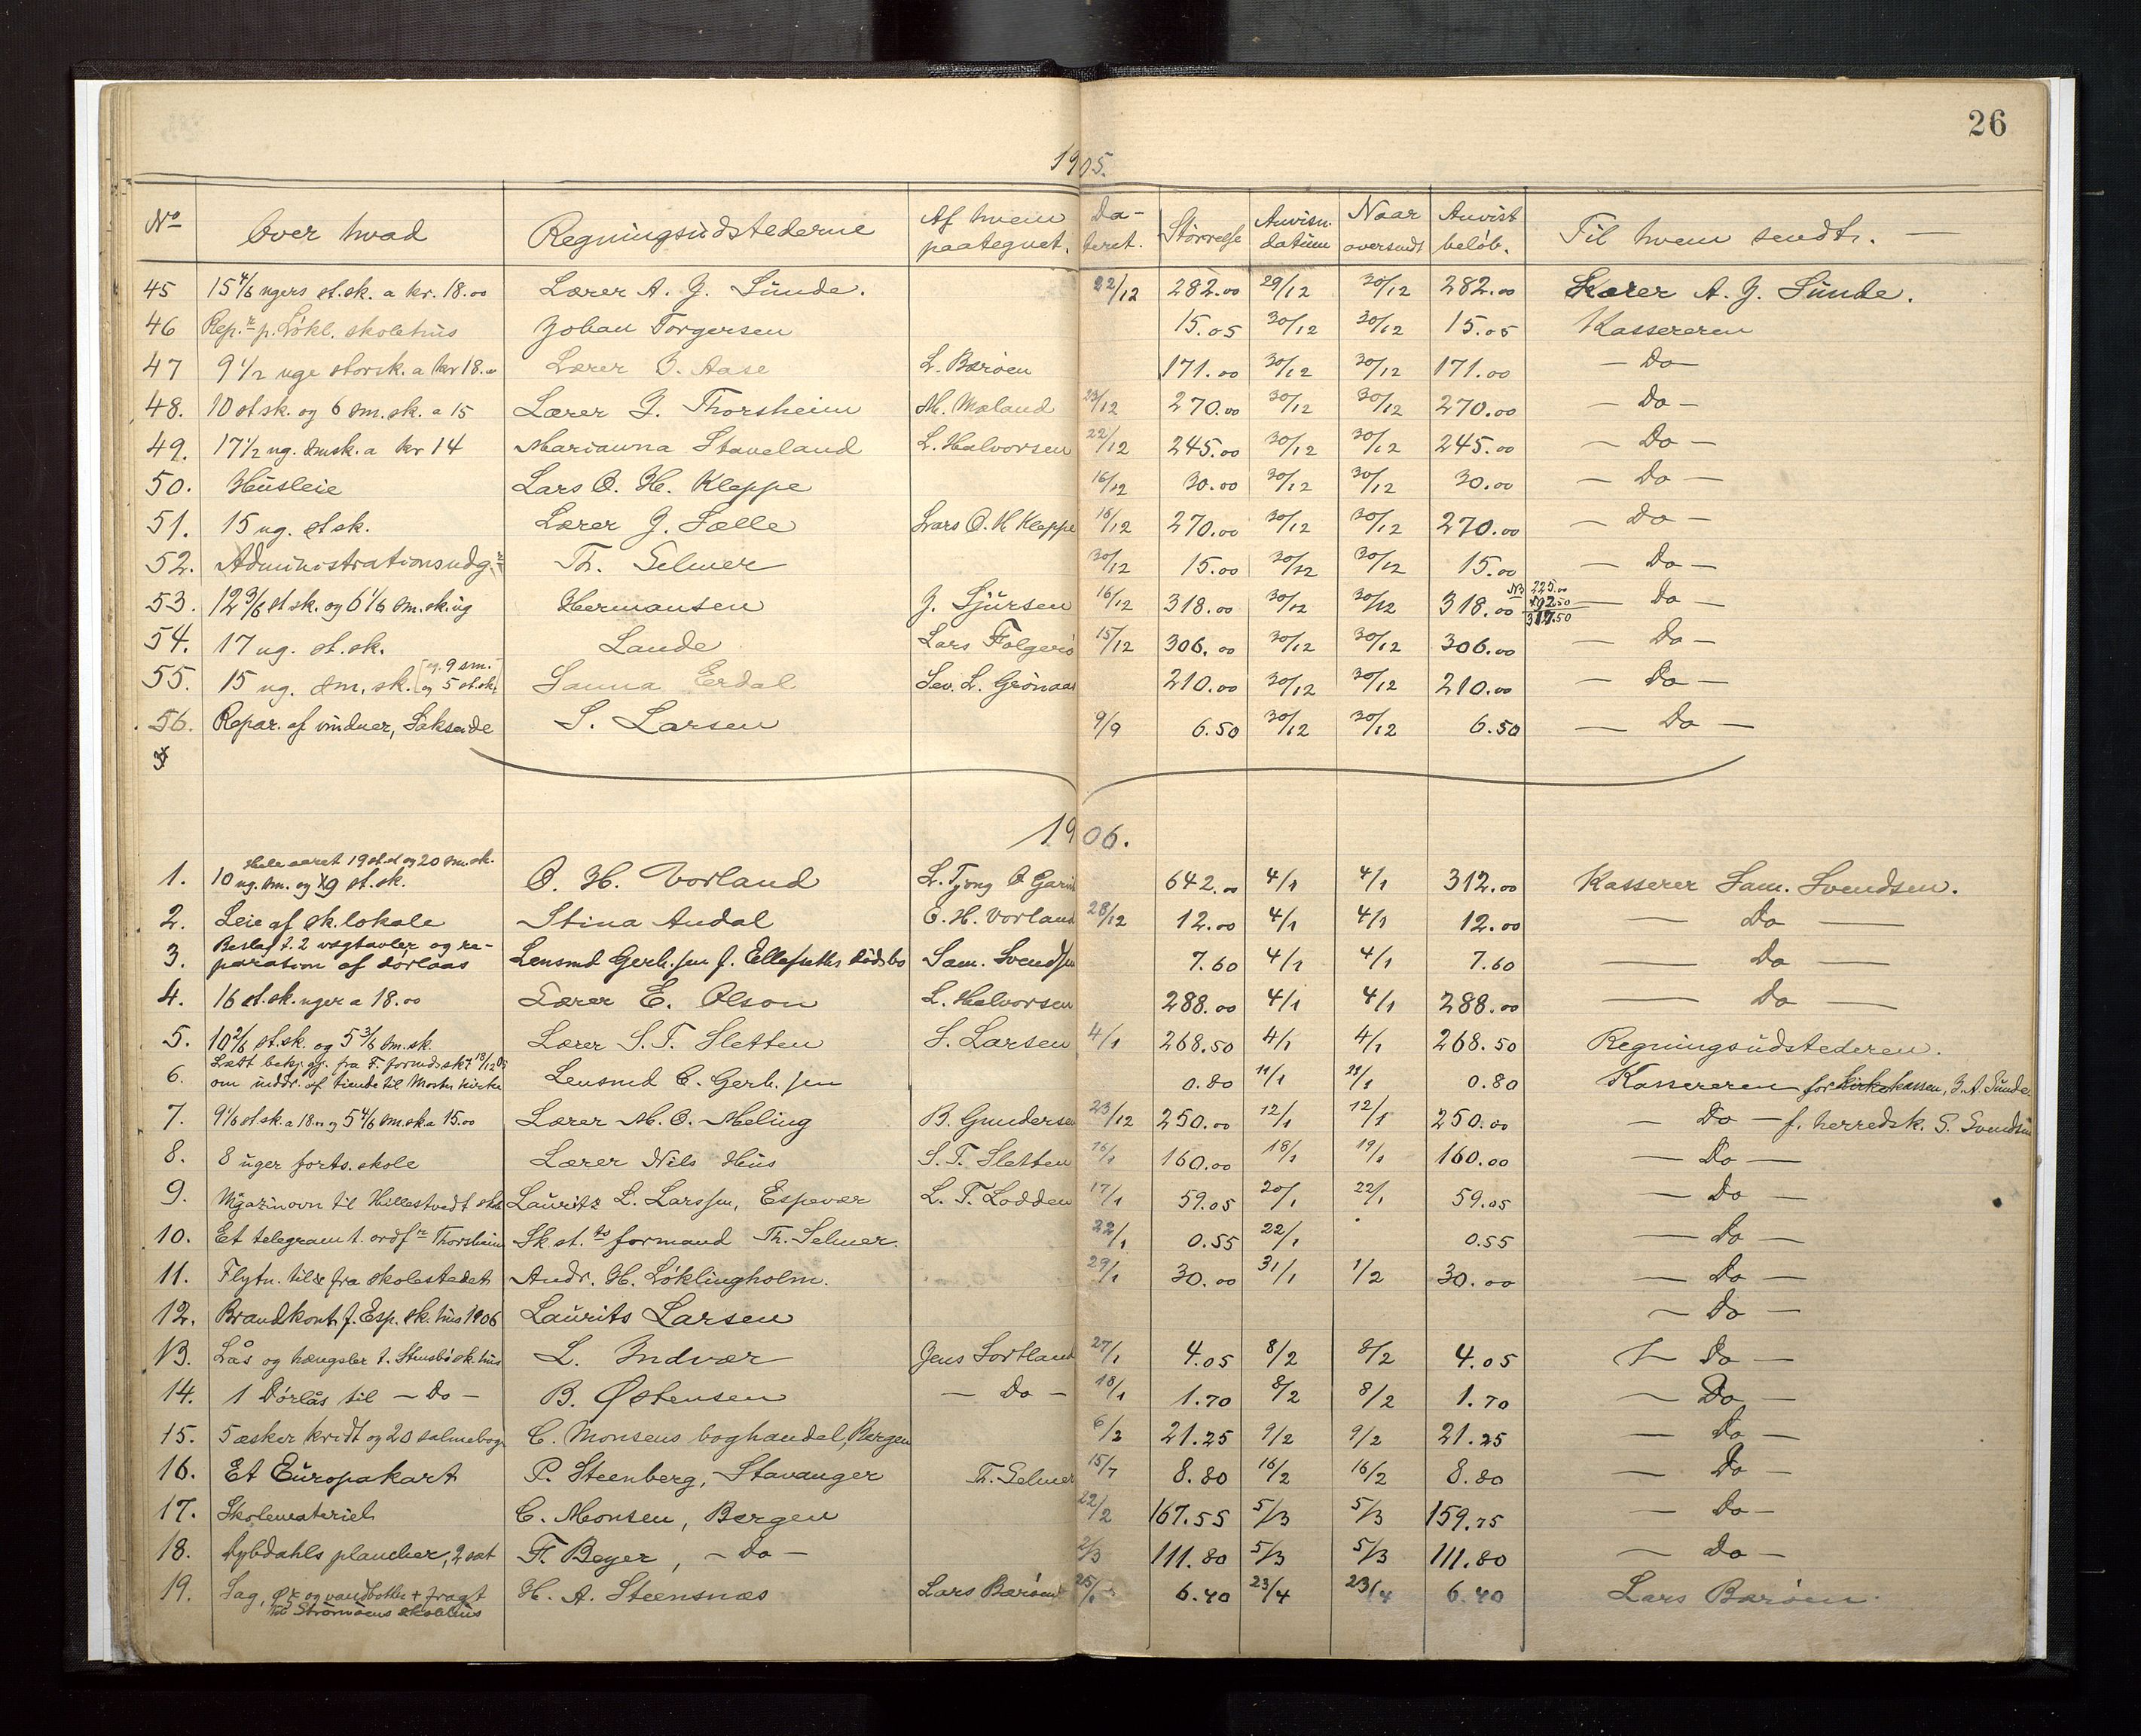 26
1905.
No Over hvad Regningsudstederne Af hvem paategnet. Dateret. Størrelse Anvisn. datum Naar oversendt Anvist beløb. Til hvem sendt.
45 15 4/6 ugers st.sk. a kr. 18.00 Lærer A. G. Sunde. 22/12 282.00 29/12 30/12 282.00 Lærer A. G. Sunde.
46 Rep.r p. Løkl. skolehus Johan Torgersen 15.05 30/12 30/12 15.05 Kassereren
47 9 1/2 uge storsk. a kr 18.00 Lærer O. Aase L. Barøen 171.00 30/12 30/12 171.00 — Do —
48. 10 st.sk. og 6 sm.sk. a 15 Lærer J. Thorsheim M. Mæland 23/12 270.00 30/12 30/12 270.00 — Do —
49. 17 1/2 ug. smsk. a kr 14 Marianna Staveland L. Halvorsen 22/12 245.00 30/12 30/12 245.00 — Do —
50. Husleie Lars O. H. Kleppe 16/12 30.00 30/12 30/12 30.00 — Do —
51. 15 ug. st.sk. Lærer J. Sælle Lars O. H Kleppe 16/12 270.00 30/12 30/12 270.00 — Do —
52. Administrationsudg.r Th. Selmer 30/12 15.00 30/12 30/12 15.00 — Do —
53. 12 3/6 st.sk. og 6 1/6 sm.sk.ug Hermansen J. Sjursen 16/12 318.00 30/12 30/12 318.00 NB 225.00 92.50 317.50 — Do —
54. 17 ug. st.sk. Lande Lars Folgerø 15/12 306.00 30/12 30/12 306.00 — Do —
55. 15 ug. sm.sk. [og. 9 sm. og 5 st.sk. Sanna Erdal Sev. L. Grønaas 210.00 30/12 30/12 210.00 — Do —
56. Repar. af vinduer, Sakseide S. Larsen 9/9 6.50 30/12 30/12 6.50 — Do —
1906.
Hele aaret 19 st.sk og 20 sm.sk.
1. 10 ug. sm. og 9 st.sk. O. H. Vorland L. Tjong O Garvik 642.00 4/1 4/1 312.00 Kasserer Sam. Svendsen.
2. Leie af sk.lokale Stina Andal O. H. Vorland 28/12 12.00 4/1 4/1 12.00 — Do —
Beslag t. 2 vægtavler og re-
3. paration af dørlaas Lensmd Gerh.sen f. Ellefsætters dødsbo Sam. Svendsen 7.60 4/1 4/1 7.60 — Do —
4. 16 st.sk.uger a 18.00 Lærer E. Olson L. Halvorsen 288.00 4/1 4/1 288.00 — Do —
5. 10 2/6 st.sk. og 5 3/6 sm.sk. Lærer S. T. Sletten S. Larsen 4/1 268.50 4/1 4/1 268.50 Regningsudstederen.
Læst bekj.gj. fra F. formdsk. 18/12 05
6. om inddr. af tiende til Moster kirke Lensmd C. Gerh.sen 0.80 11/1 28/1 0.80 Kassereren for Kirkekassen, J. A. Sunde.
7. 9 1/6 st.sk. a 18.00 og 5 4/6 sm.sk. a 15.00 Lærer M. O. Meling B. Gundersen 23/12 250.00 12/1 12/1 250.00 — Do — f. herredsk. S. Svendsen
8. 8 uger forts. skole Lærer Nils Hus S. T. Sletten 16/1 160.00 18/1 19/1 160.00 — Do —
9. Magazinovn til Hillestvedt skole Lauritz L. Larssen, Espevær L. T. Lodden 17/1 59.05 20/1 22/1 59.05 — Do —
10. Et telegram t. ordf.r Thorsheim Sk.st.ts formand Th. Selmer. 22/1 0.55 22/1 0.55 — Do —
11. Flytn. til & fra skolestedet Andr. H. Løklingholm. 29/1 30.00 31/1 1/2 30.00 — Do —
12. Brandkont. f. Esp. sk.hus 1906 Laurits Larsen — Do —
13. Lås og hængsler t. Stensbø sk.hus L. Indvær Jens Sortland 27/1 4.05 8/2 8/2 4.05 — Do —
14. 1 Dørlås til — Do — B. Østensen — Do — 18/1 1.70 8/2 8/2 1.70 — Do —
15. 5 æsker kridt og 20 salmebøger C. Monsens boghandel, Bergen 6/2 21.25 9/2 9/2 21.25 — Do —
16. Et Europakart P. Steenberg, Stavanger Th. Selmer 15/7 8.80 16/2 16/2 8.80 — Do —
17. Skolemateriel C. Monsen, Bergen 22/2 167.55 5/3 5/3 159.75 — Do —
18. Dybdahls plancher, 2 sæt F. Beyer, — Do — 2/3 111.80 5/3 5/3 111.80 — Do —
19. Sag, øx og vandbøtte + fragt H. A. Steensnæs Lars Barøen 25/ 6.40 23/4 23/4 6.40 Lars Barøen.
til Strømøens skolehus